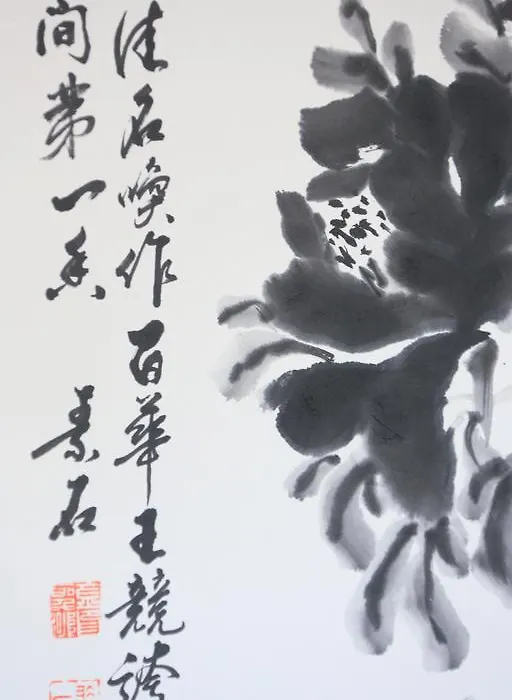 佳名喚作百華王競誇
間第一香 素石